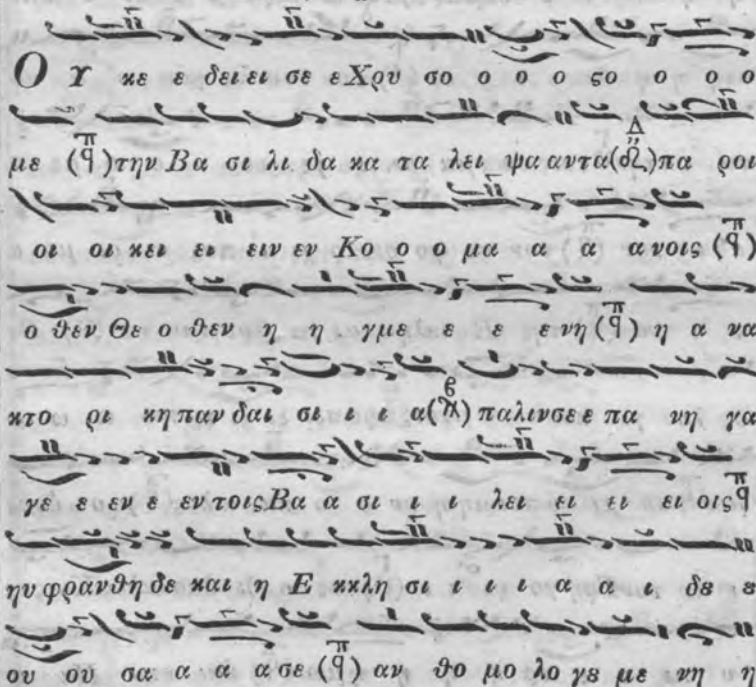 Ο Υ κε ε δει ει σε ε Χρυ σο ο ο ο ςο ο ο ο
με (π̅ q) την Βα σι λι δα κα τα λει ψα αντα (Δ) πα ροι
οι οι κει ει ειν εν Κο ο ο μα α α ανοις (π̅ q)
ο θεν Θε ο θεν η η γμε ε ε ενη (π̅ q) η α να
κτο ρι κη παν δαι σι ι ι α (β) παλιν σε ε πα νη γα
γε ε εν ε εν τοις Βα α σι ι ι λει ει ει ει οις π̅ q
ηυ φρανθη δε και η Ε κκλη σι ι ι ι α α ι δε ε
ου ου σα α α α σε (π̅ q) αν θο μο λο γε με νη η